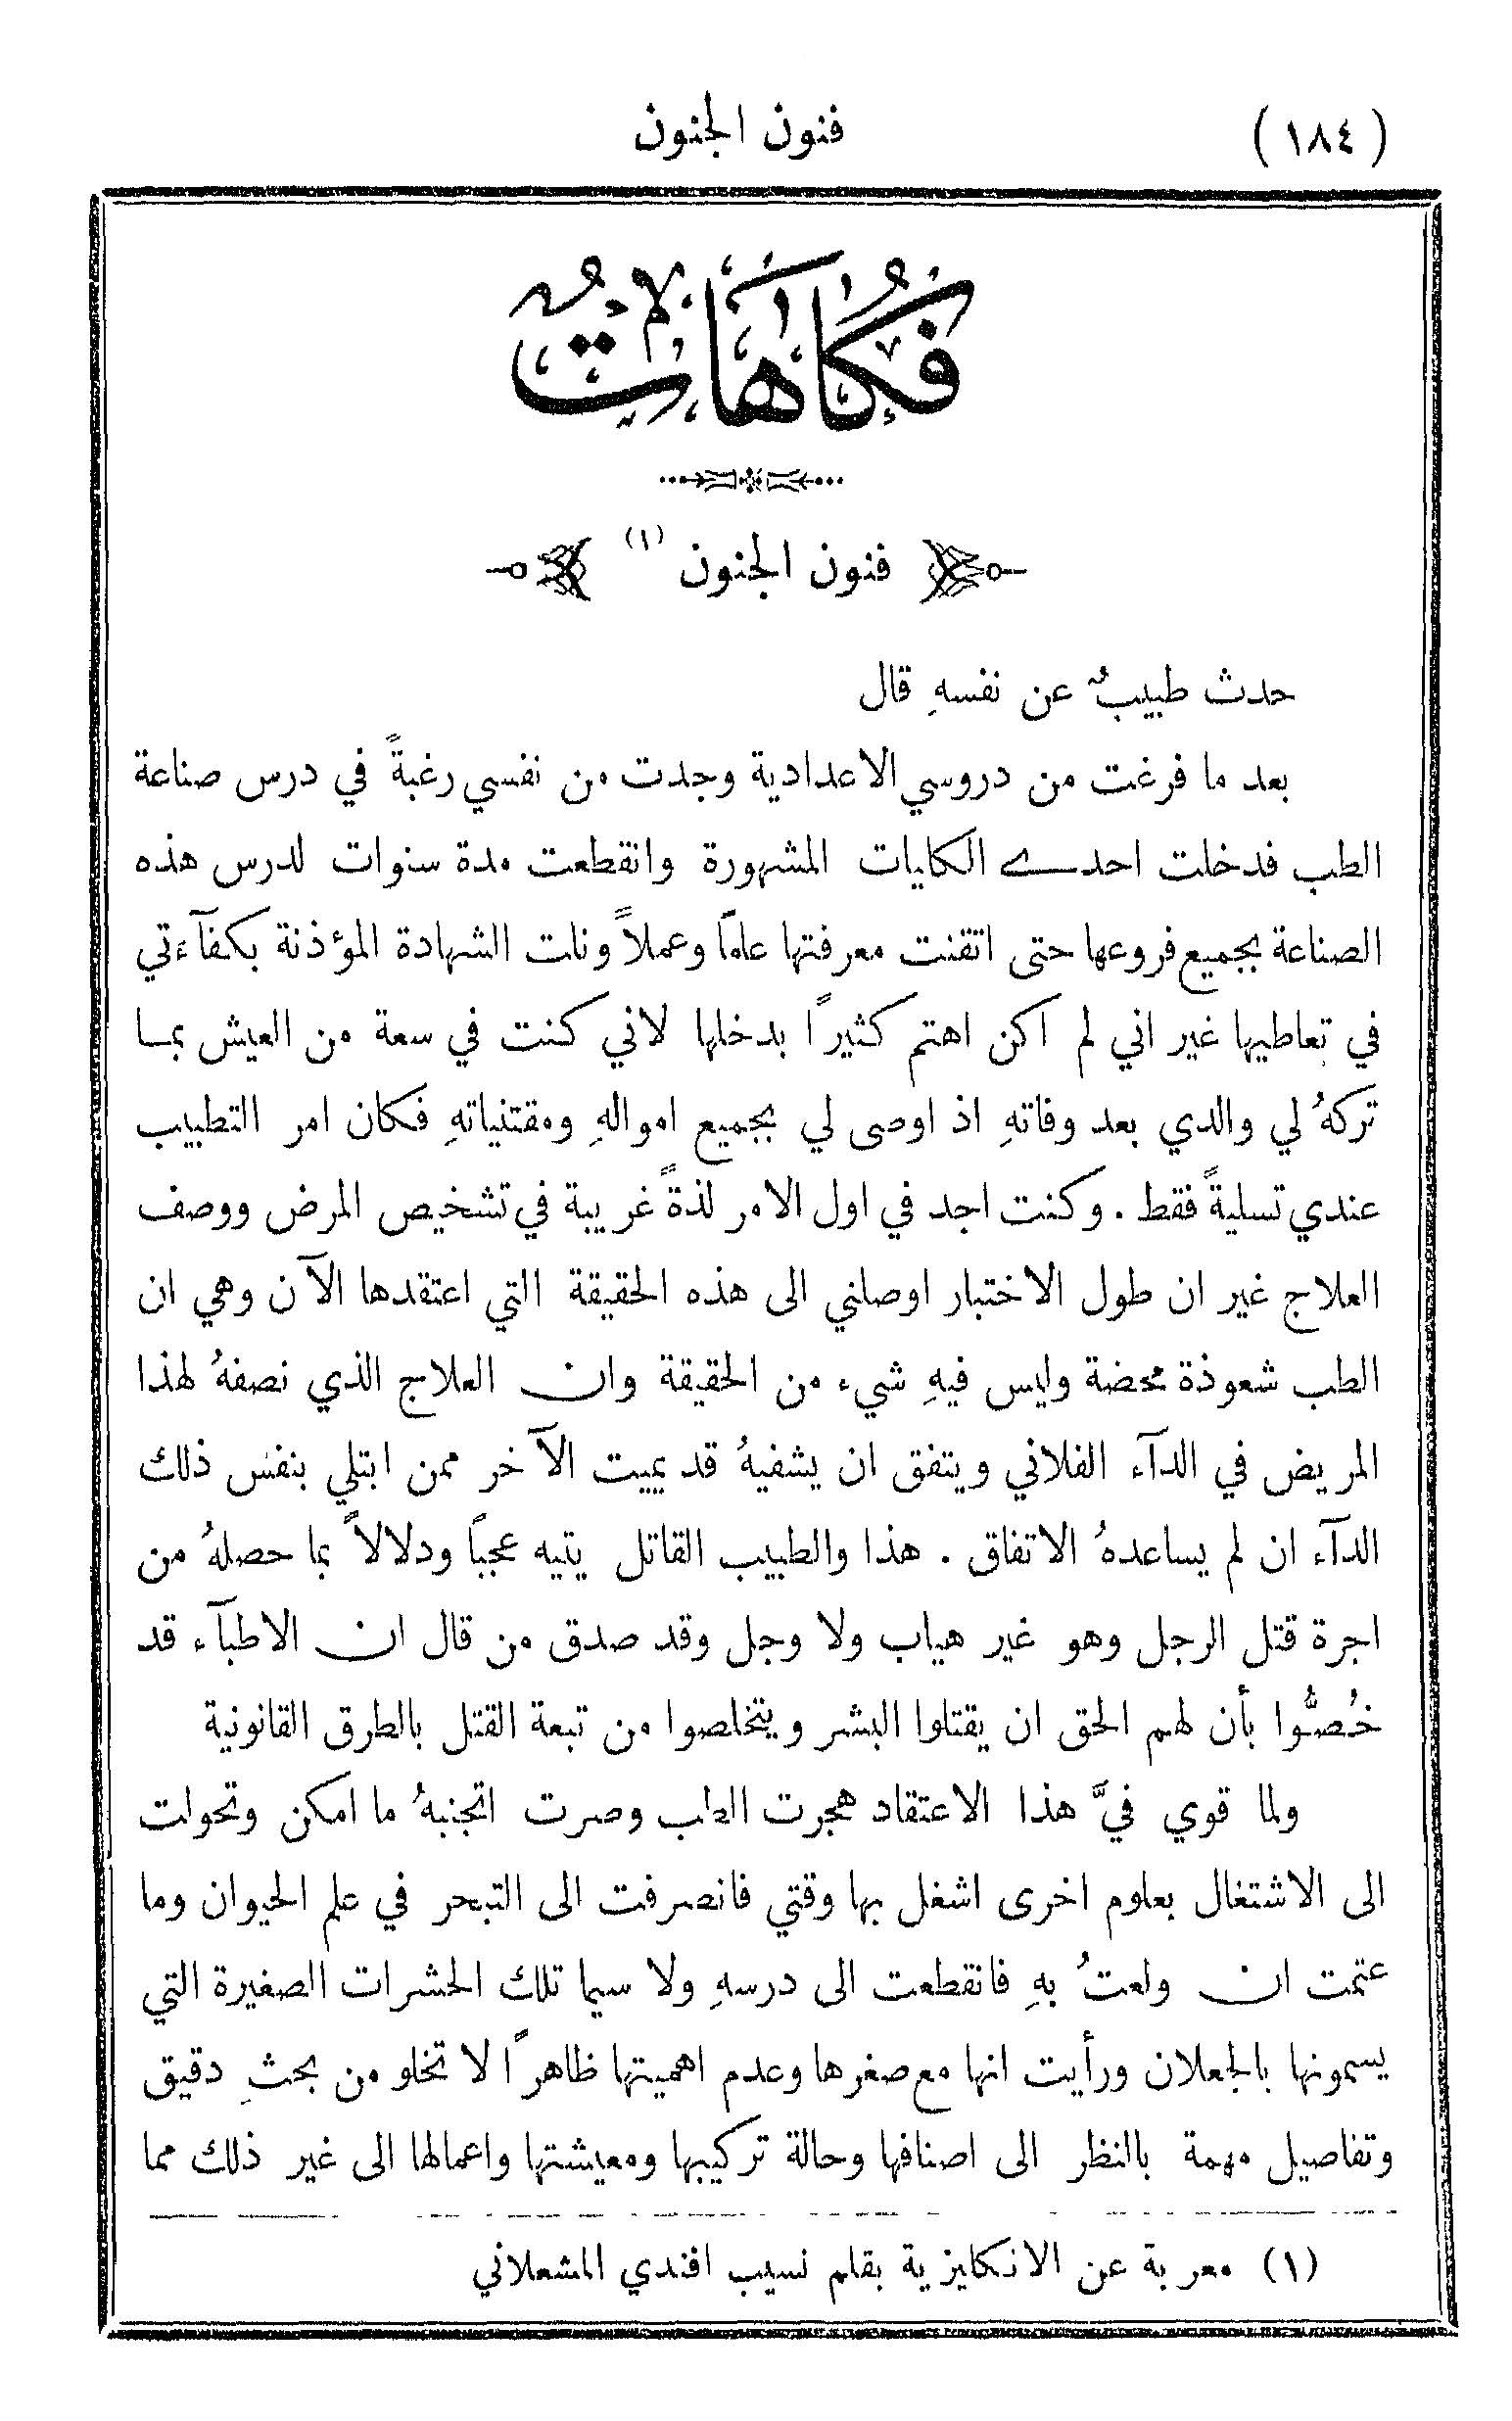 (١٨٤) فنون الجنون
فُكَاهَاتٌ
فنون الجنون (١)
حدث طبيبٌ عن نفسهِ قال
بعد ما فرغت من دروسي الاعدادية وجدت من نفسي رغبةً في درس صناعة
الطب فدخلت احدى الكليات المشهورة وانقطعت مدة سنوات لدرس هذه
الصناعة بجميع فروعها حتى اتقنت معرفتها علمًا وعملاً ونلت الشهادة المؤذنة بكفآءتي
في تعاطيها غير اني لم اكن اهتم كثيرًا بدخلها لاني كنت في سعة من العيش بما
تركهُ لي والدي بعد وفاتهِ اذ اوصى لي بجميع اموالهِ ومقتنياتهِ فكان امر التطبيب
عندي تسليةً فقط . وكنت اجد في اول الامر لذةً غريبة في تشخيص المرض ووصف
العلاج غير ان طول الاختبار اوصلني الى هذه الحقيقة التي اعتقدها الآن وهي ان
الطب شعوذة محضة وليس فيهِ شيء من الحقيقة وان العلاج الذي نصفهُ لهذا
المريض في الدآء الفلاني ويتفق ان يشفيهُ قد يميت الآخر ممن ابتلي بنفس ذلك
الدآء ان لم يساعدهُ الاتفاق . هذا والطبيب القاتل يتيه عجبًا ودلالاً بما حصلهُ من
اجرة قتل الرجل وهو غير هياب ولا وجل وقد صدق من قال ان الاطبآء قد
خُصُّوا بأن لهم الحق ان يقتلوا البشر ويتخلصوا من تبعة القتل بالطرق القانونية
ولما قوي فيَّ هذا الاعتقاد هجرت الطب وصرت اتجنبهُ ما امكن وتحولت
الى الاشتغال بعلوم اخرى اشغل بها وقتي فانصرفت الى التبحر في علم الحيوان وما
عتمت ان ولعتُ بهِ فانقطعت الى درسهِ ولا سيما تلك الحشرات الصغيرة التي
يسمونها بالجعلان ورأيت انها مع صغرها وعدم اهميتها ظاهرًا لا تخلو من بحثِ دقيق
وتفاصيل مهمة بالنظر الى اصنافها وحالة تركيبها ومعيشتها واعمالها الى غير ذلك مما
(١) معربة عن الانكليزية بقلم نسيب افندي المشعلاني